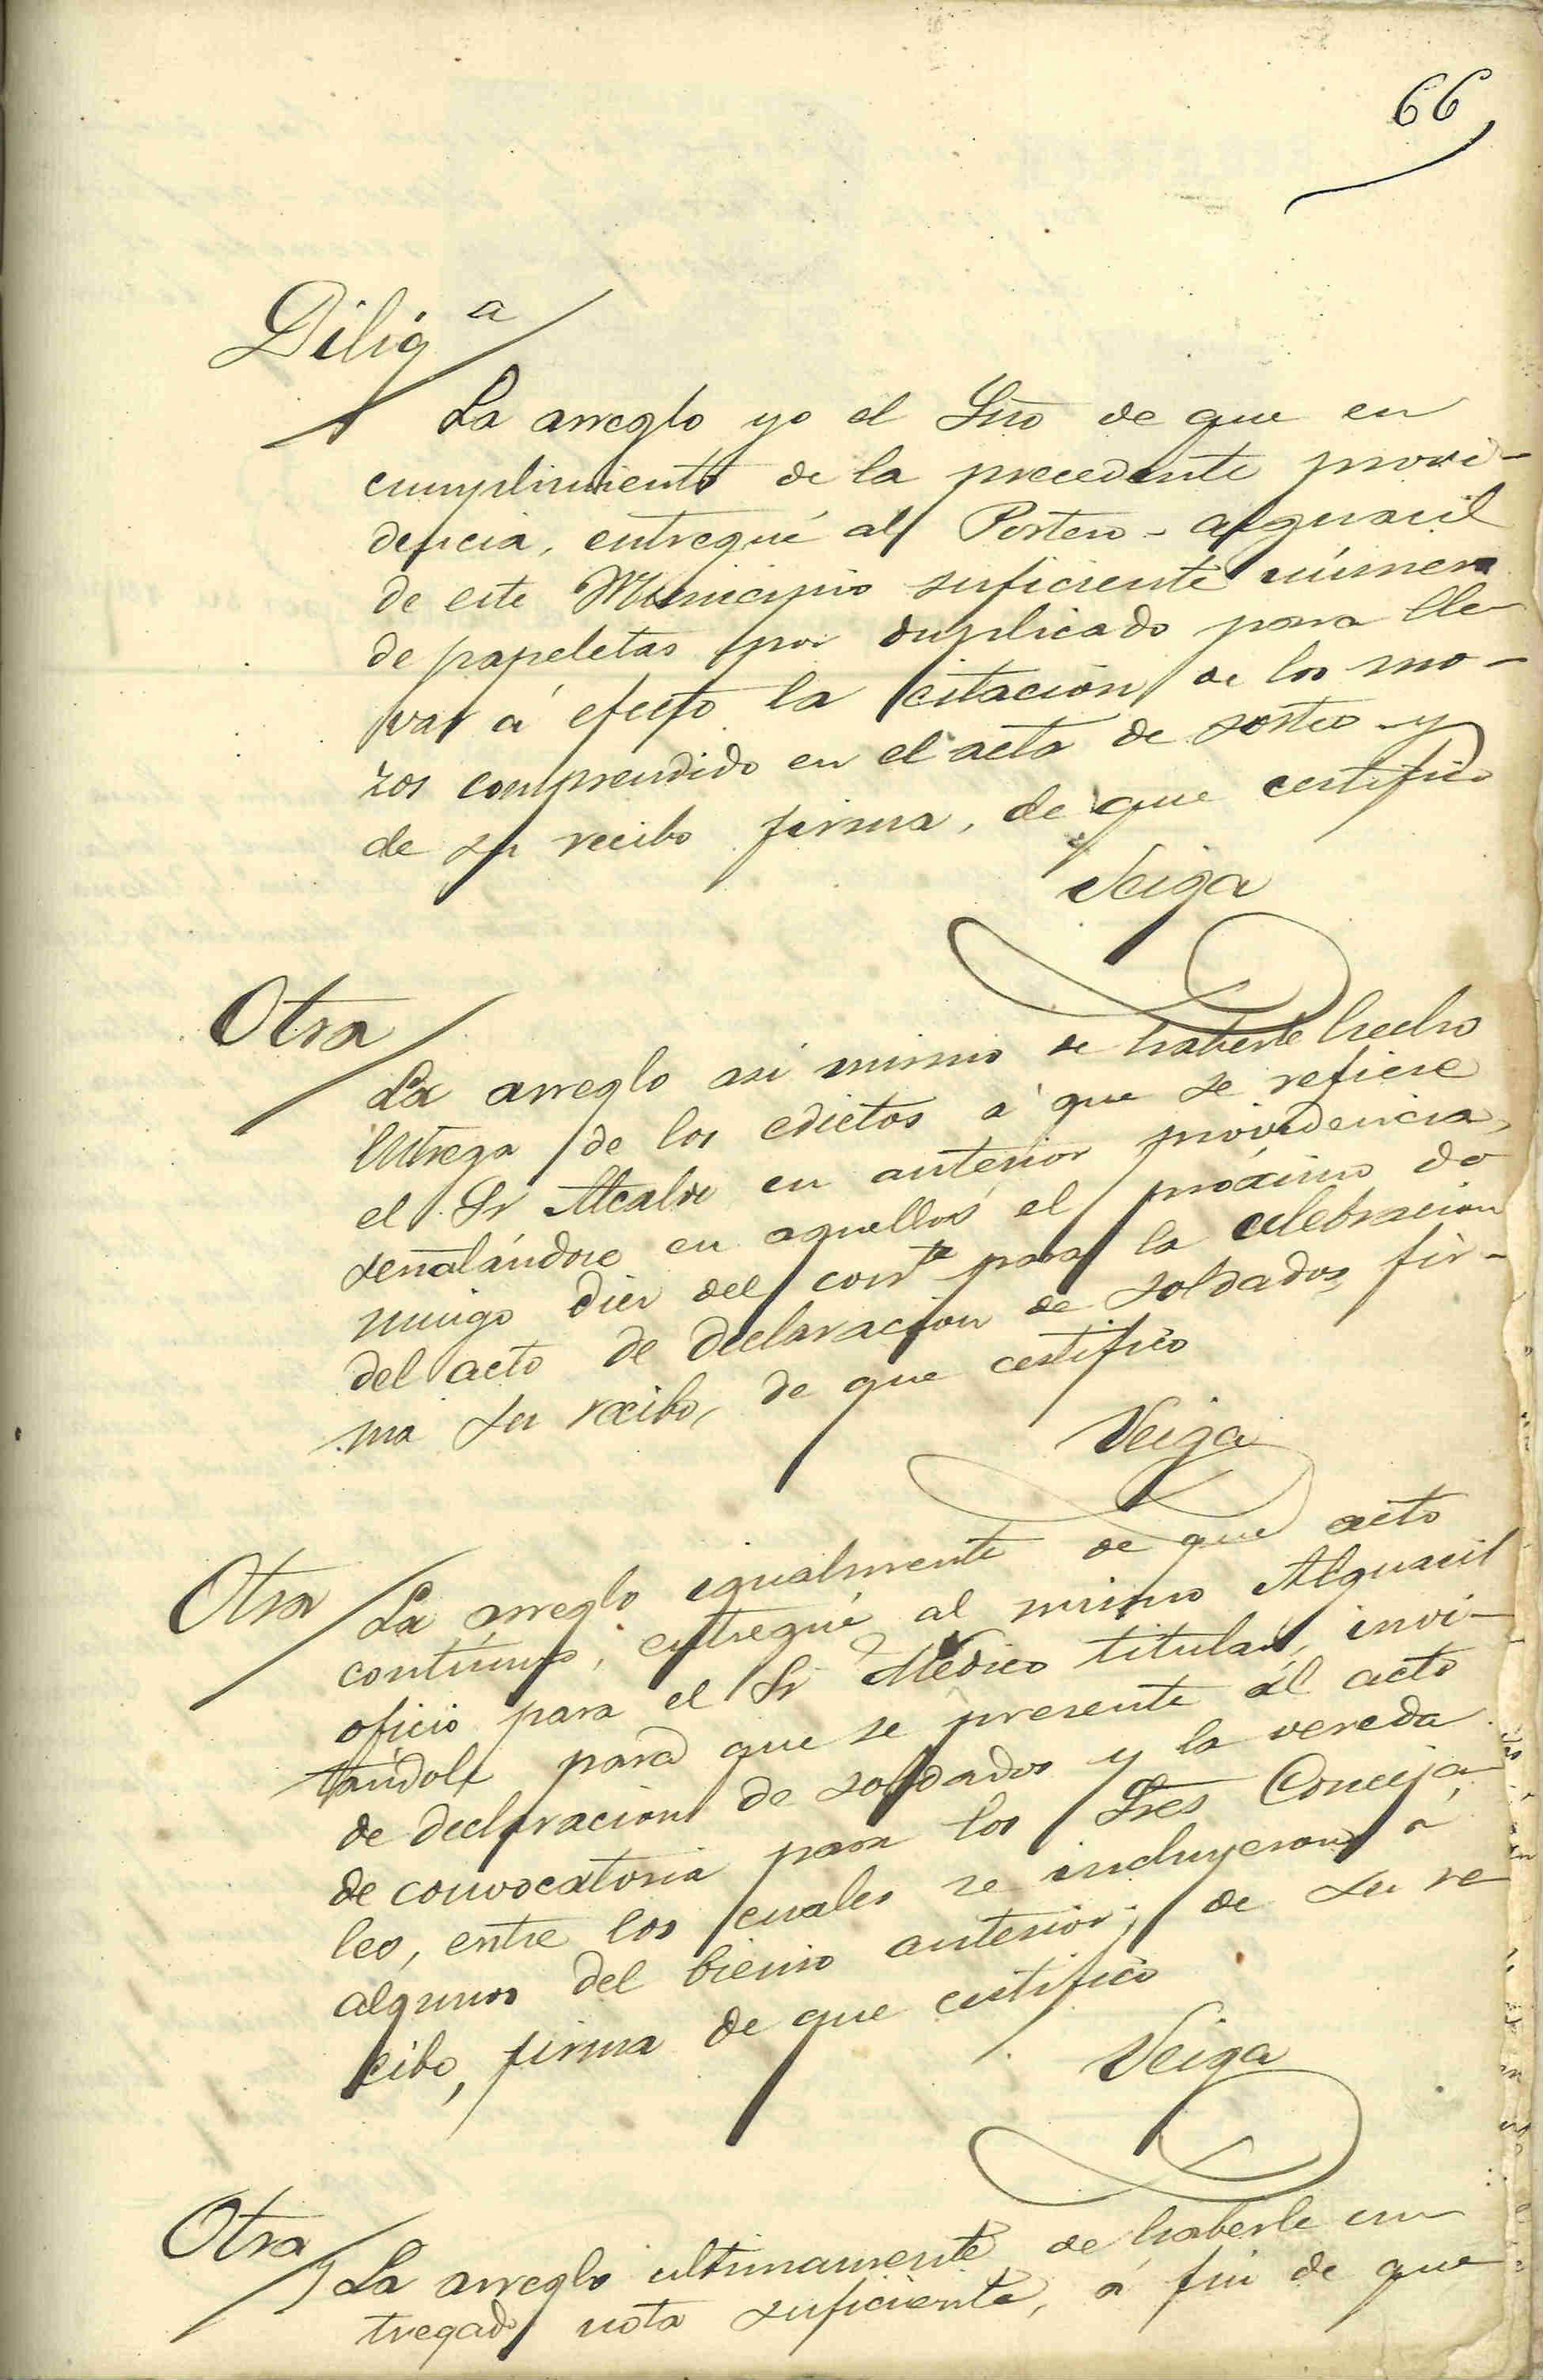 66
Dilig.a
La arreglo yo el Srio de que en
cumplimiento de la precedente provi-
dencia, entregué al Portero-alguacil
de este Municipio suficiente número
de papeletas por duplicado para lle-
var á efecto la citación de los mo-
zos comprendido en el acta de sorteo y
de su recibo firma, de que certifico
Veiga
Otra
La arreglo asi mismo de haberle hecho
entrega de los edictos á que se refiere
el Sr Alcalde en anterior providencia,
señalándose en aquellos el próximo do
mingo diez del corrte para la celebracion
del acto de declaracion de soldados, fir-
ma su recibo, de que certifico
Veiga
Otra
La arreglo igualmente de que acto
contínuo, entregué al mismo Alguacil
oficio para el Sr Médico titular, invi-
tándole para que se presente al acto
de declaracion de soldados y la vereda
de convocatoria para los Sres Conceja-
les, entre los cuales se incluyeron á
algunos del bienio anterior; de su re-
cibo, firma de que certifico
Veiga
Otra
La arreglo ultimamente de haberle en-
tregado nota suficiente, á fin de que